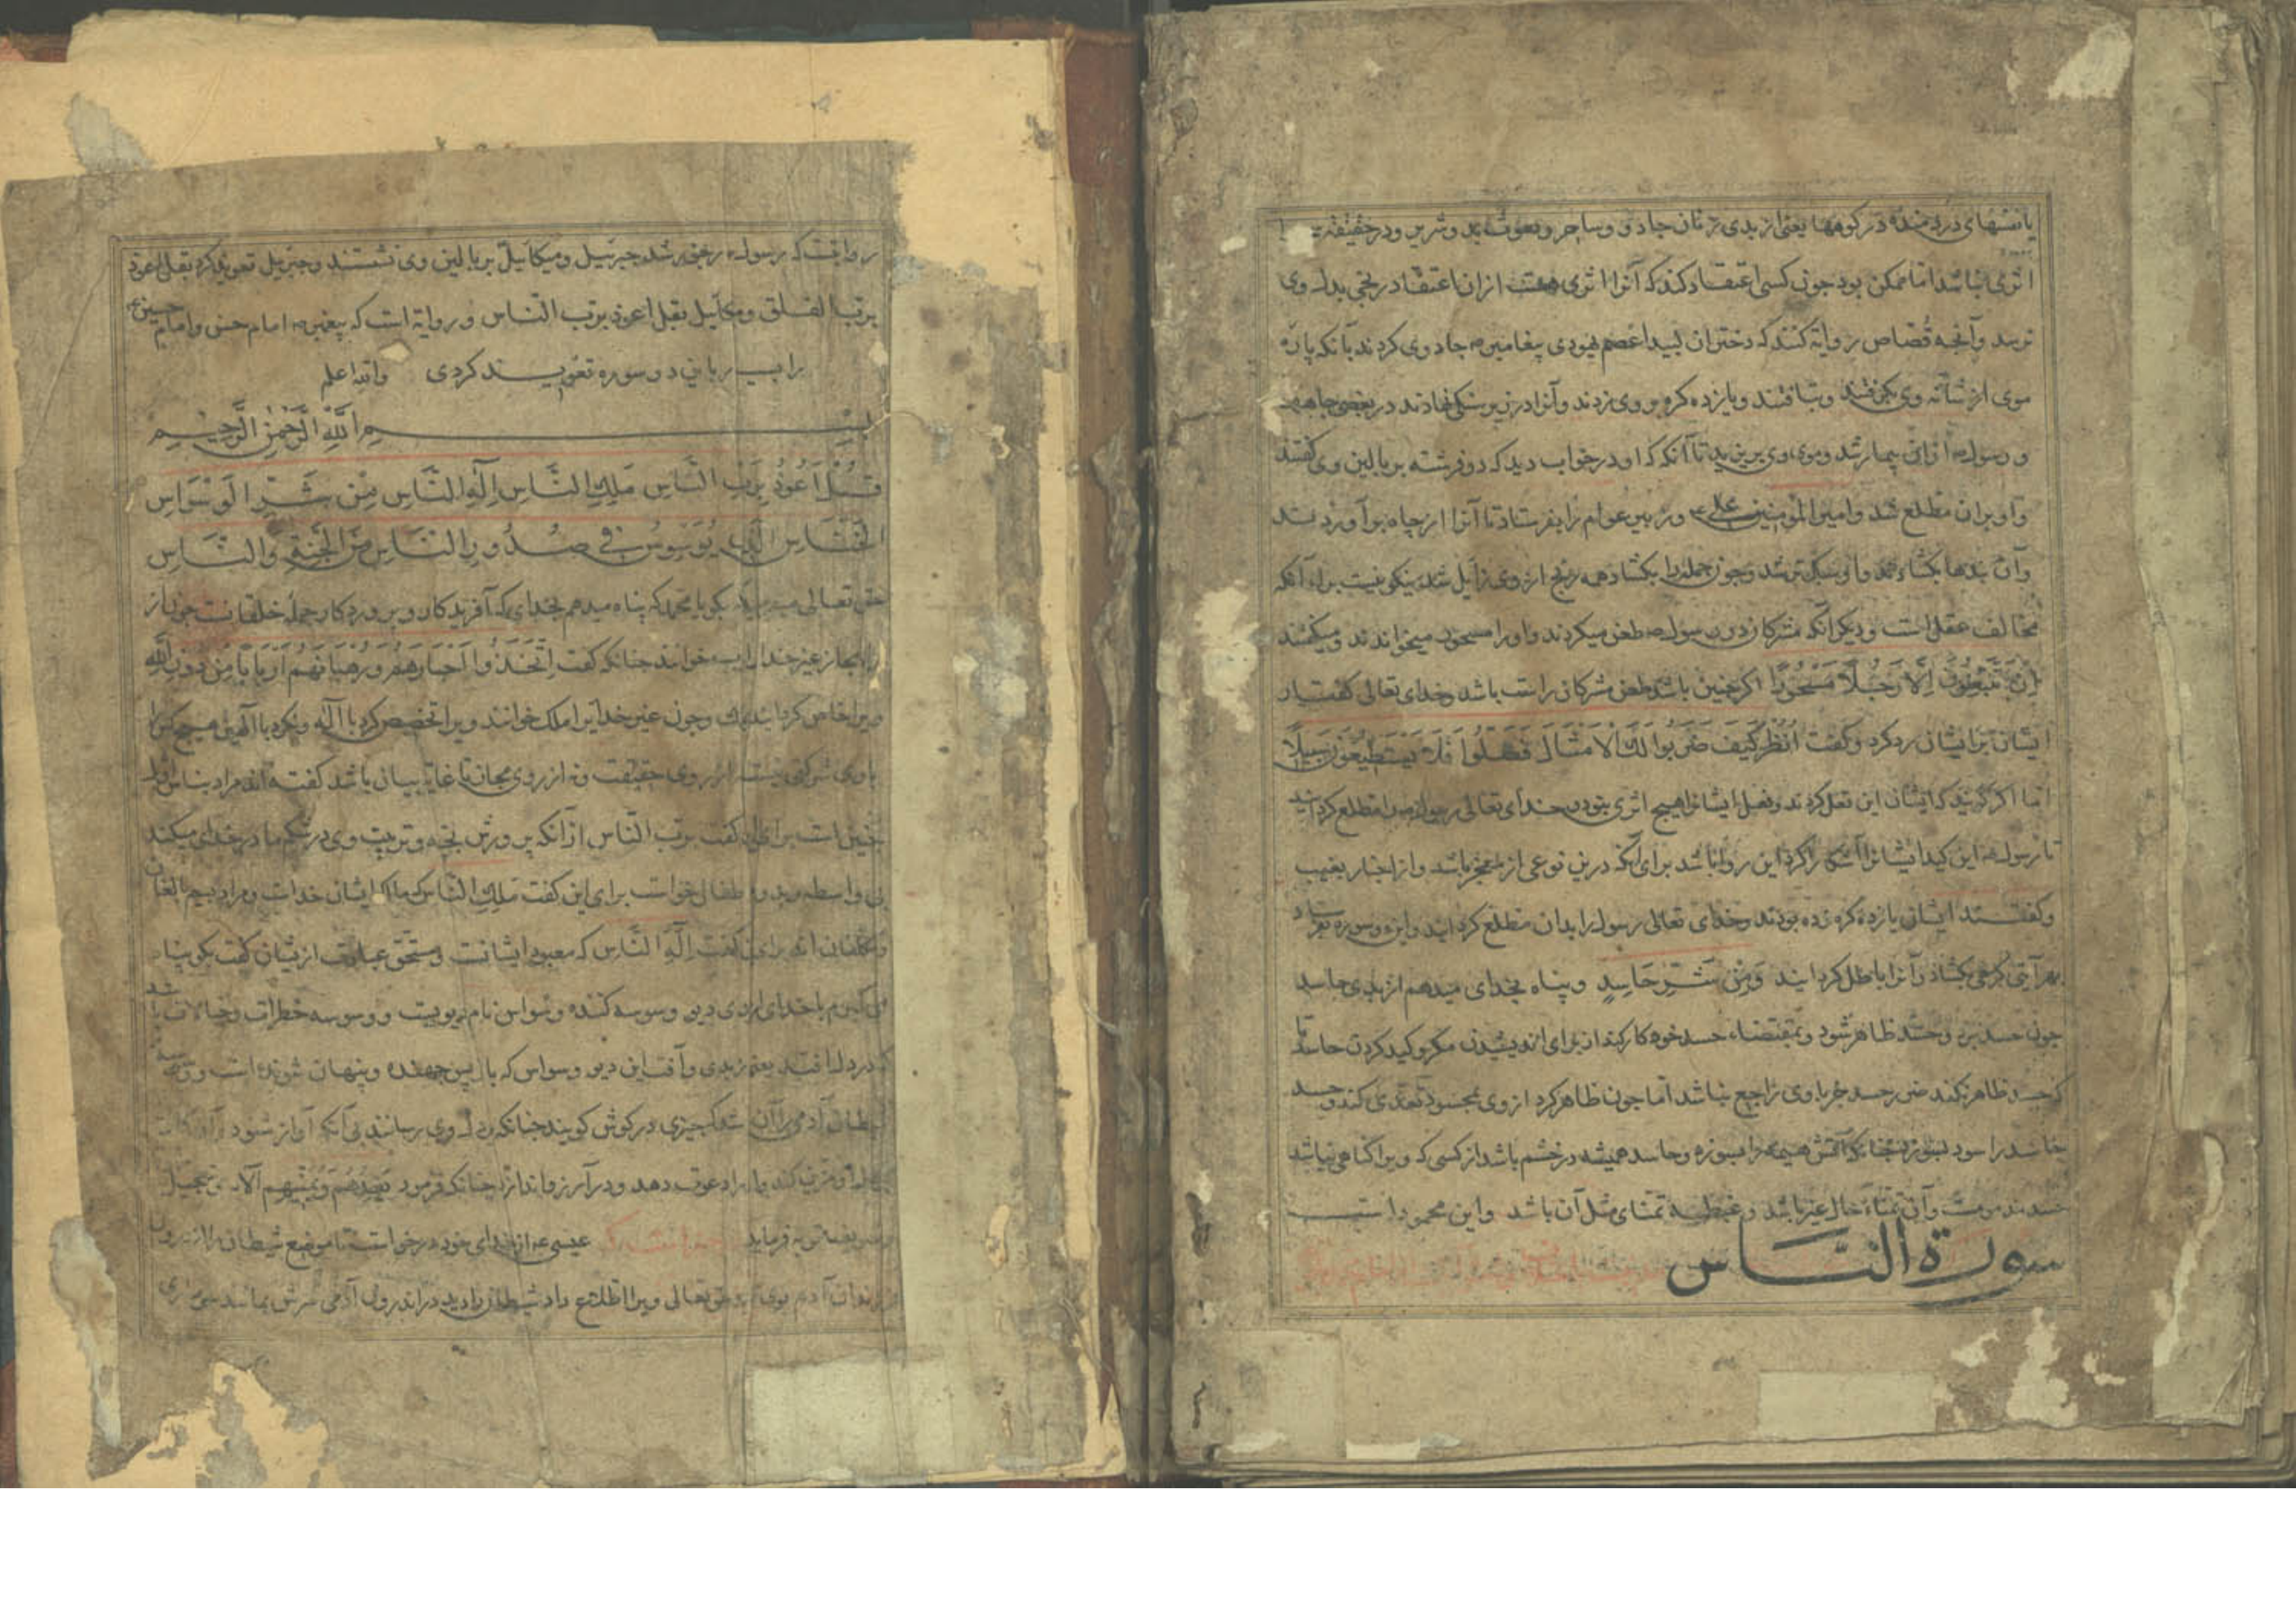 یا نفسهای دردمنده در کوهها یعنی از بدی زنان جادو و ساحر و در حقیقة
اثری نباشد اما ممکن بود چون کسی اعتقاد کند که آنرا اثری هست از ان اعتقاد رنجی بدل وی
رسد و آنچه قصاص روایة کنند که دختران لبید اعصم یهودی پیغامبر جادوی کردند بآنکه پاره
موی از شانه وی بکرفتند و بتافتند و یازده کره بر وی زدند و آنرا در زیر سنکی نهادند در بعضی چاهها
و رسول از این بیمار شد و موی وی بریزید تا آنکه که او در خواب دید که دو فرشته بر بالین وی کفتند
و او بران مطلع شد و امیر المؤمنین علی و زبیر عوام را بفرستاد تا آنرا از چاه برآوردند
و آن بندها بکشادند و او سبکتر شد و چون جمله را بکشاد همه رنج از وی زایل شد نیکو نیست برای آنکه
مخالف عقل است و دیکر آنکه مشرکان در رسول طعن میکردند و او را مسحور میخواندند و میکفتند
اِنْ تَتَّبِعُونَ اِلَّا رَجُلًا مَسْحُورًا اکر چنین باشد طعن مشرکان راست باشد و خدای تعالی کفتار
ایشان بر ایشان رد کرد و کفت اُنْظُرْ كَيْفَ ضَرَبُوا لَكَ الْاَمْثَالَ فَضَلُّوا فَلَا يَسْتَطِيعُونَ سَبِيلًا
اما اکر کویند که ایشان این فعل کردند و فعل ایشانرا هیچ اثری نبود و خدای تعالی رسول را مطلع کردانید
تا رسول این کید ایشانرا آشکارا کرد این روا باشد برای آنکه درین نوعی از معجز باشد و از اخبار بغیب
و کفتند ایشان یازده کره زده بودند و خدای تعالی رسول را بدان مطلع کردانید و این دو سوره بفرستاد
بهر آیتی کرهی بکشاد و آنرا باطل کردانید وَمِنْ شَرِّ حَاسِدٍ و پناه بخدای میدهم از بدی حاسد
چون حسد برد و حسد ظاهر شود و بمقتضاء حسد خود کار کند از برای اندیشیدن مکر و کید کردن حاسد تا
که حسد ظاهر نکند ضرر حسد جز با وی راجع نباشد اما چون ظاهر کرد از وی بمحسود تعدی کند و حسد
حاسد را بسوزد چنانکه آتش هیمه را بسوزد و حاسد همیشه در خشم باشد از کسی که ویرا کناهی نباشد
حسد مذمومست و آن تمناء حال غیر باشد و غبطه تمنای مثل آن باشد و این محمود است
سورة الناس
روایتست که رسول رنجور شد جبرئیل و میکائیل بر بالین وی نشستند و جبریل تعویذ کرد بقل اعوذ
برب الفلق و میکائیل بقل اعوذ برب الناس و روایة است که پیغمبر امام حسن و امام حسین
را بدین دو سوره تعویذ کردی والله اعلم
بسم الله الرحمن الرحیم
قُلْ اَعُوذُ بِرَبِّ النَّاسِ مَلِكِ النَّاسِ اِلٰهِ النَّاسِ مِنْ شَرِّ الْوَسْوَاسِ
الْخَنَّاسِ الَّذِي يُوَسْوِسُ فِي صُدُورِ النَّاسِ مِنَ الْجِنَّةِ وَالنَّاسِ
حق تعالی میفرماید بکو یا محمد که پناه میدهم بخدای که آفریدکار و پروردکار جمله خلقانست چون از
راه مجاز غیر خدا را رب خوانند چنانکه کفت اِتَّخَذُوا اَحْبَارَهُمْ وَرُهْبَانَهُمْ اَرْبَابًا مِنْ دُونِ اللّٰهِ
ویرا خاص کردانید بملک و چون غیر خدایرا ملک خوانند ویرا تخصیص کرد با اله و نکرد با الهی هیچ کس را
با وی شرکتی نیست از روی حقیقت و نه از روی مجاز تا غایة بیان باشد کفته اند مراد بناس اول
جنین است برای آن کفت برب الناس از آنکه پرورش بچه و تربیت وی در شکم مادر خدای میکند
بی واسطه و طفال خواست برای این کفت مَلِكِ النَّاسِ که مالک ایشان خداست و مراد بالغان
و مکلفان اند برای کفت اِلٰهِ النَّاسِ که معبود ایشانست و مستحق عبادت از ایشان کفت بکو پناه
می کیرم با خدای از بدی دیو وسوسه کننده و وسواس نام دیویست و وسوسه خطرات و خیالات باشد
که در دل افتد یعنی بدی و آفت این دیو وسواس که باز پس جهنده و پنهان شونده است و وسوسه
شیطان آدمی را آن باشد که چیزی در کوش کویند چنانکه بدل وی رسانند بی آنکه آواز شنود
دعوت دهد و در آرزو اندازد چنانکه فرمود یَعِدُهُمْ وَيُمَنِّيهِمْ
توبه فرماید عیسی از خدای خود درخواست تا موضع شیطان را از درون
فرزندان آدم بوی حق تعالی ویرا اطلاع داد شیطان را دید در اندرون آدمی سرش مانند سر ماری